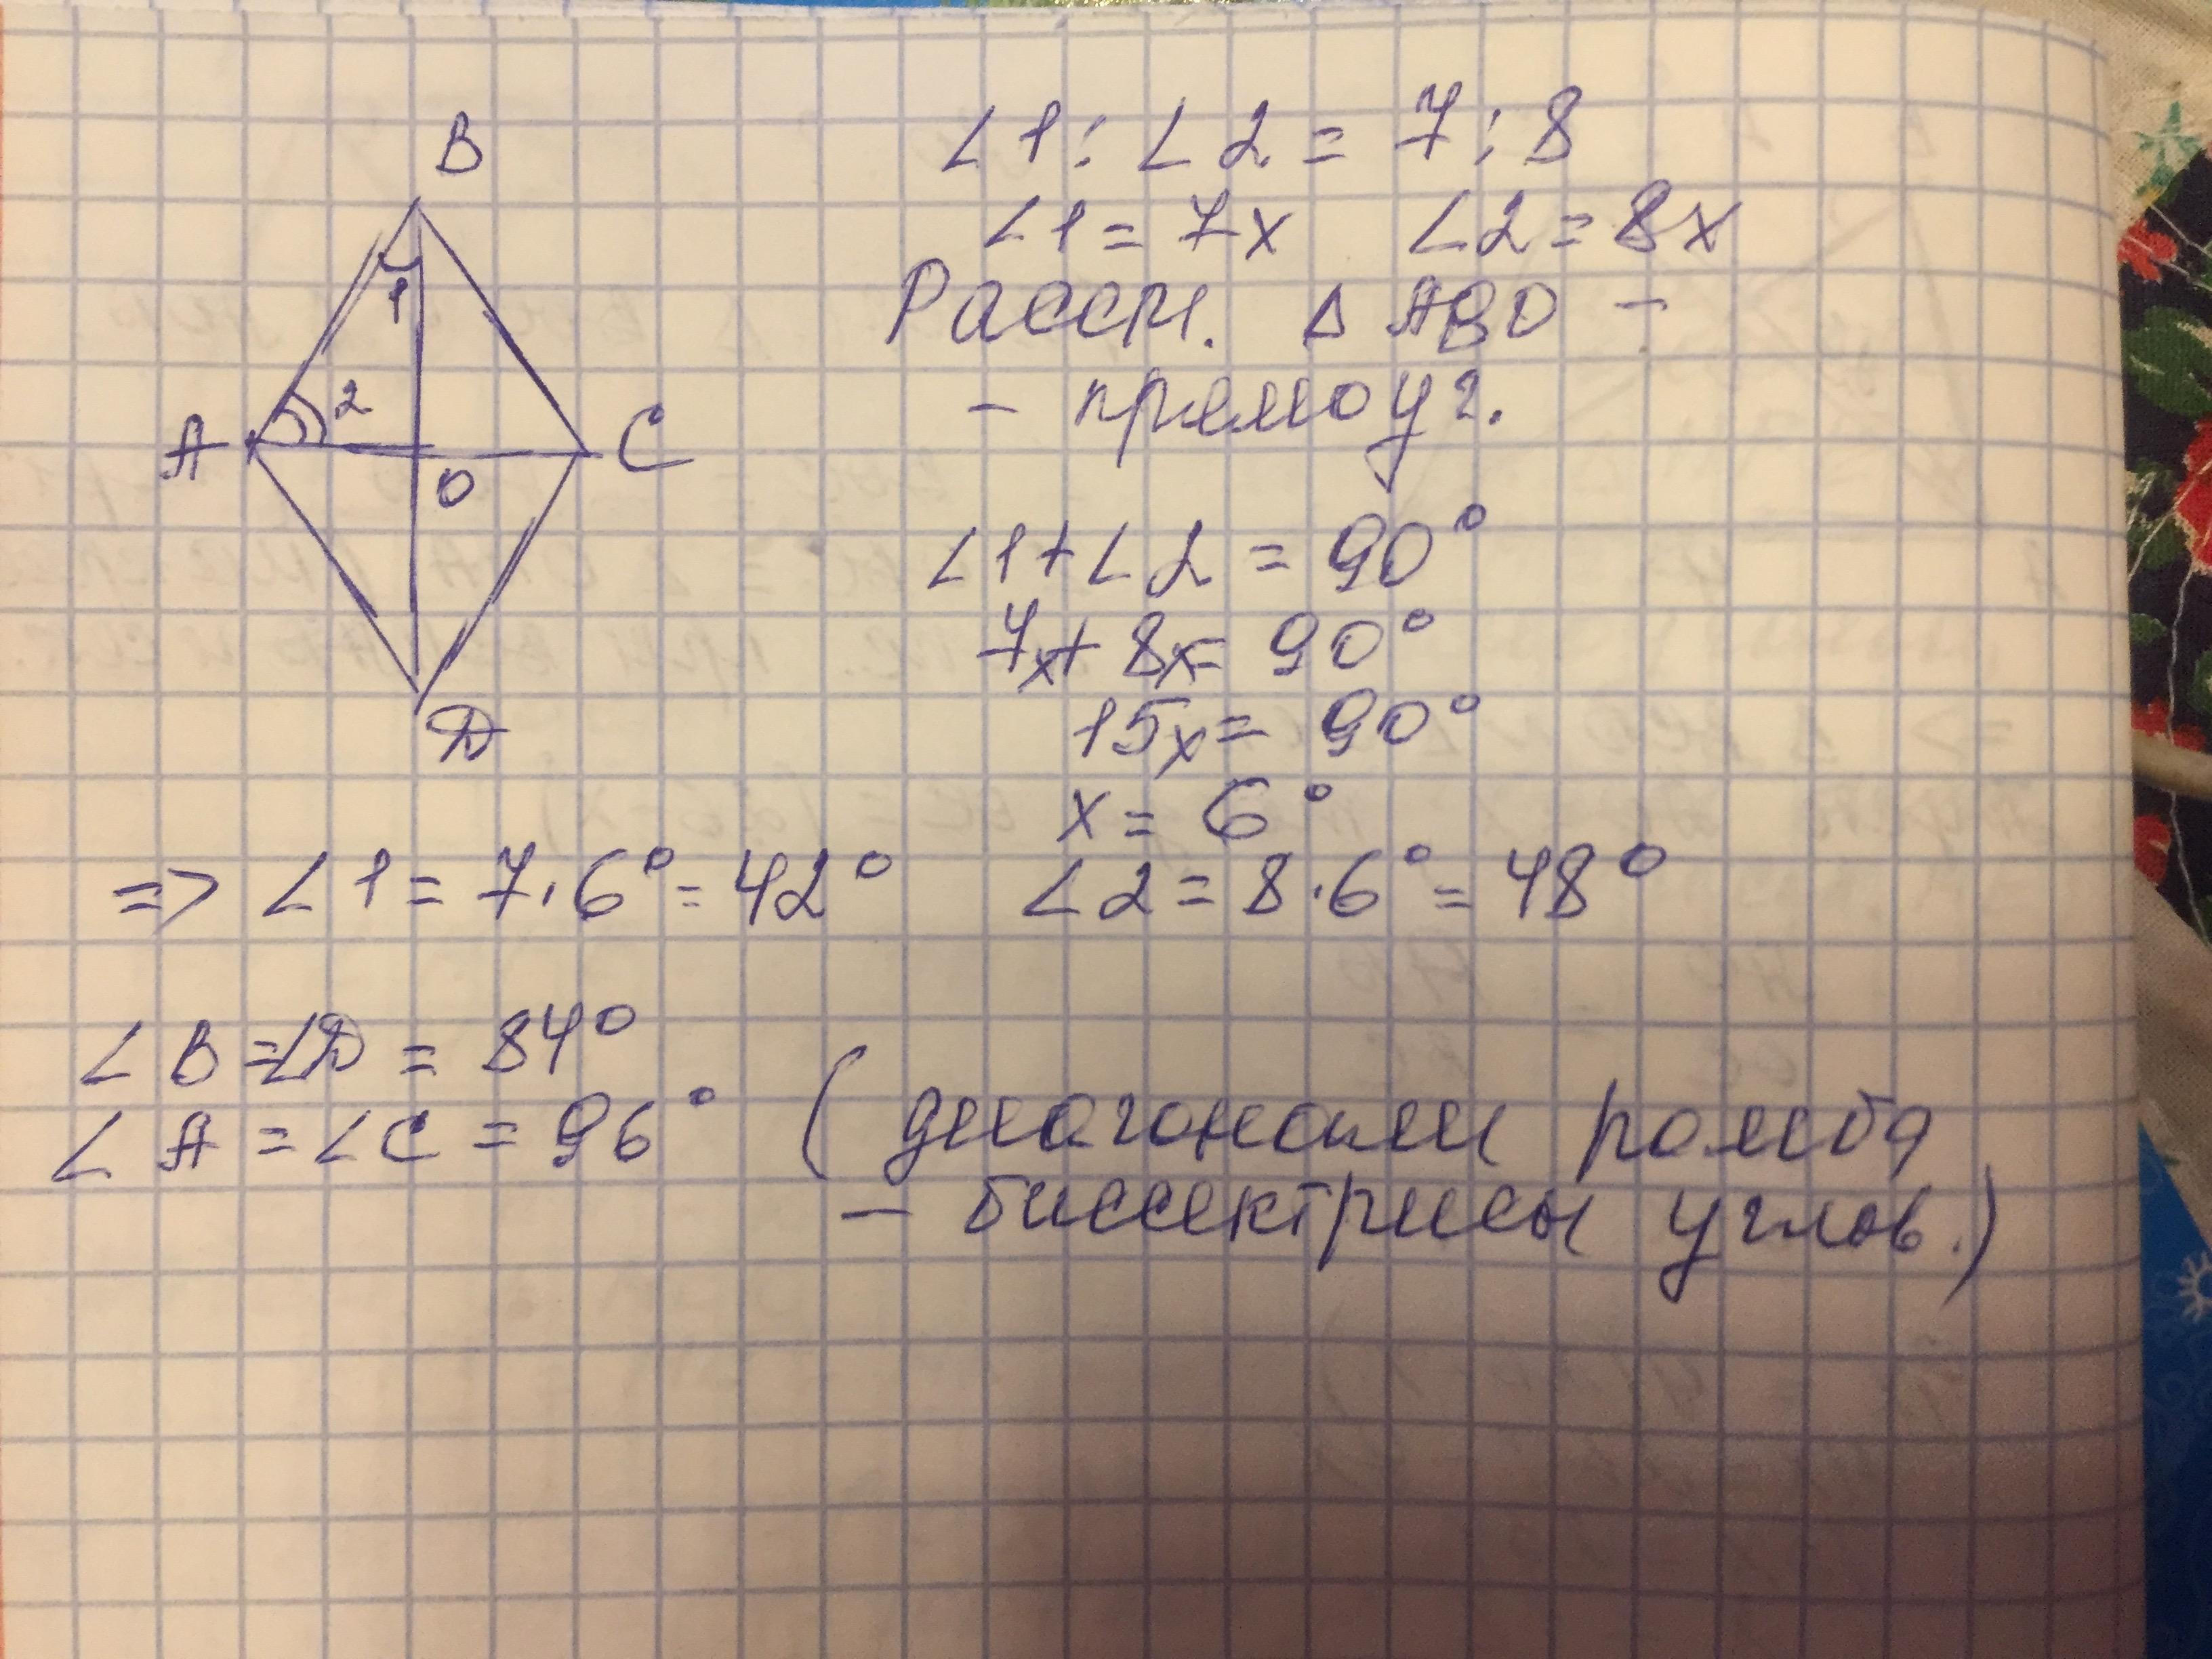 B
1
2
A
O
C
D
∠1 : ∠2 = 7 : 8
∠1 = 7x ∠2 = 8x
Рассм. Δ ABO –
– прямоуг.
∠1 + ∠2 = 90°
7x + 8x = 90°
15x = 90°
x = 6°
=> ∠1 = 7 · 6° = 42° ∠2 = 8 · 6° = 48°
∠B = ∠D = 84°
∠A = ∠C = 96° (диагонали ромба
– биссектрисы углов.)